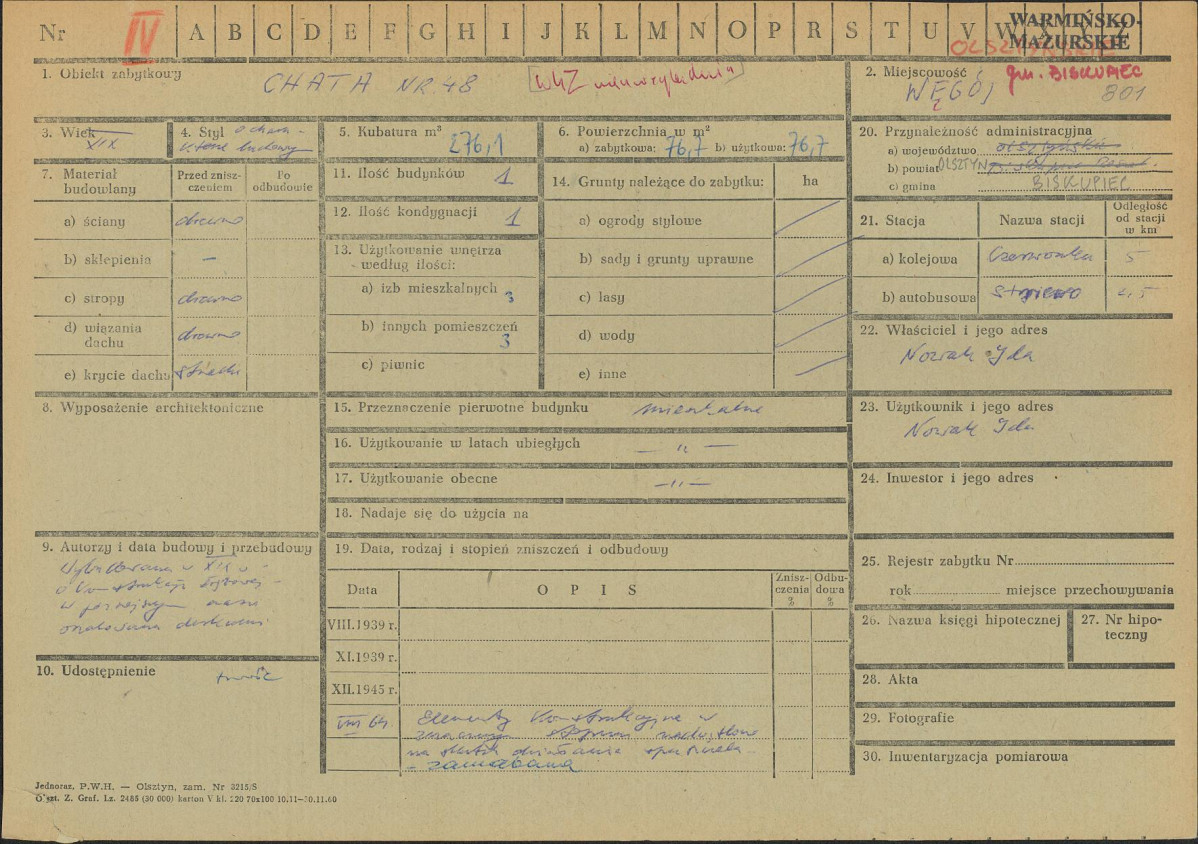 Nr IV A B C D E F G H I J K L M N O P R S T U V W
WARMIŃSKO-
MAZURSKIE
1. Obiekt zabytkowy
CHATA NR 48
WKZ
2. Miejscowość
gm. BISKUPIEC
WĘGÓJ
801
3. Wiek
XIX
4. Styl
5. Kubatura m³
276,1
6. Powierzchnia w m²
a) zabytkowa: 76,7 b) użytkowa: 76,7
7. Materiał
budowlany
Przed znisz-
czeniem
Po
odbudowie
a) ściany drewno
b) sklepienia —
c) stropy drewno
d) wiązania
dachu drewno
e) krycie dachu
8. Wyposażenie architektoniczne
9. Autorzy i data budowy i przebudowy
10. Udostępnienie
11. Ilość budynków 1
12. Ilość kondygnacji 1
13. Użytkowanie wnętrza
według ilości:
a) izb mieszkalnych 3
b) innych pomieszczeń
3
c) piwnic
14. Grunty należące do zabytku: ha
a) ogrody stylowe
b) sady i grunty uprawne
c) lasy
d) wody
e) inne
15. Przeznaczenie pierwotne budynku mieszkalne
16. Użytkowanie w latach ubiegłych — „ —
17. Użytkowanie obecne — „ —
18. Nadaje się do użycia na
19. Data, rodzaj i stopień zniszczeń i odbudowy
Data OPIS Znisz-
czenia
%
Odbu-
dowa
%
VIII.1939 r.
XI.1939 r.
XII.1945 r.
VIII 64 Elementy konstrukcyjne w
20. Przynależność administracyjna
a) województwo olsztyńskie
b) powiat OLSZTYN
c) gmina BISKUPIEC
21. Stacja Nazwa stacji
Odległość
od stacji
w km
a) kolejowa Czerwonka 5
b) autobusowa
22. Właściciel i jego adres
Nowak Ida
23. Użytkownik i jego adres
Nowak Ida
24. Inwestor i jego adres
25. Rejestr zabytku Nr
rok miejsce przechowywania
26. Nazwa księgi hipotecznej
27. Nr hipo-
teczny
28. Akta
29. Fotografie
30. Inwentaryzacja pomiarowa
Jednoraz. P.W.H. — Olsztyn, zam. Nr 3215/S
Olszt. Z. Graf. Lz. 2485 (30 000) karton V kl. 220 70x100 10.11—30.11.60